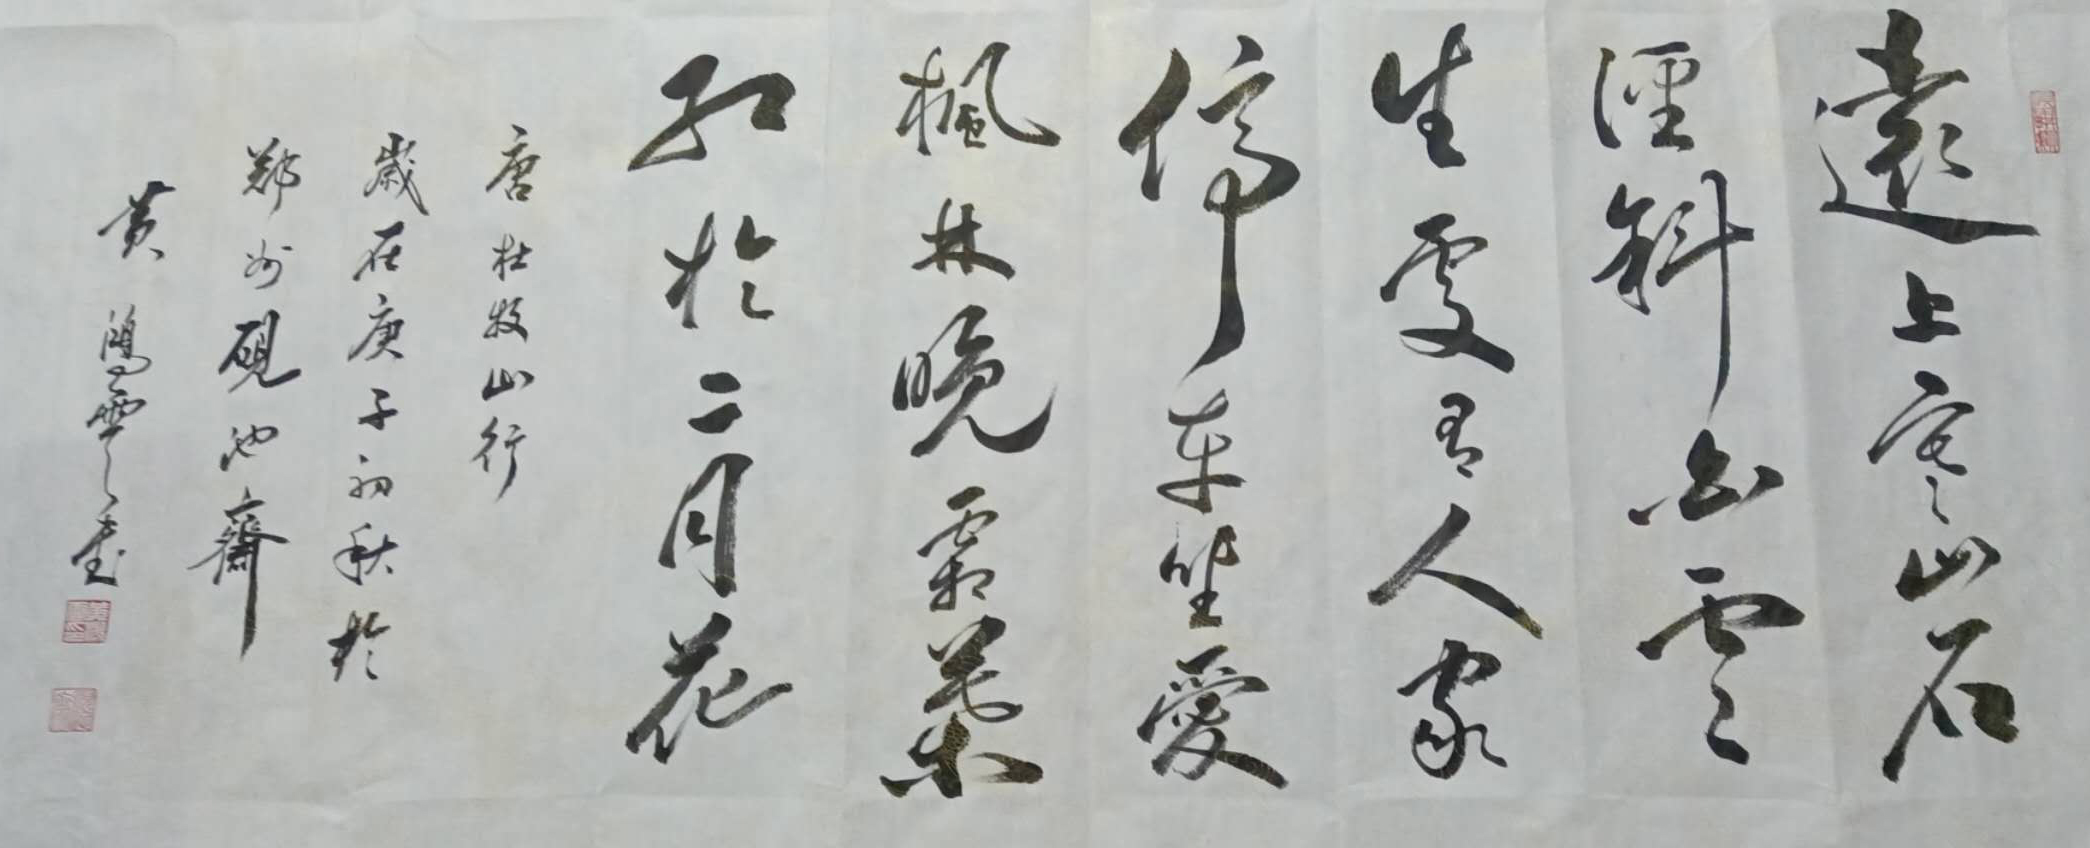 遠上寒山石
徑斜白雲
生處有人家
停車坐愛
楓林晚霜葉
紅於二月花
唐杜牧山行
歲在庚子初秋於
鄭州硯池齋
黃鴻雲書